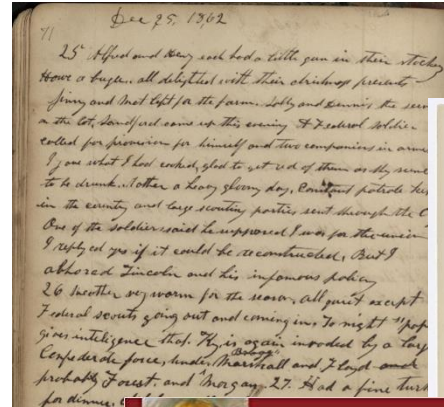 Dec 25, 1862
71
25 Alfred and Henry each had a little gun in their stocking
Howe a bugle. all delighted with their christmas presents
Jinny and Mat left for the farm. Lobby and Dennis the
on the lot, Sandford came up this evening. A Federal soldier
called for provision for himself and two companions in arms
I gave what I had cooked, glad to get red of them as they
to be drunk. Mother a heavy gloomy day, Constant patrole
in the country and large scouting parties sent through the C
One of the soldiers said he supposed I was for the union
I replyed yes if it could be reconstructed, But I
abhored Lincoln and his infamous policy
26 Weather very warm for the season, all quiet except
Federal scouts going out and coming in, To night "pop
gives inteligence that Ky is again invaded by a larg
Confederate force, under Bragg Marshall and Floyd and
probably Forest, and Morgan. 27. Had a fine turk
for dinner,